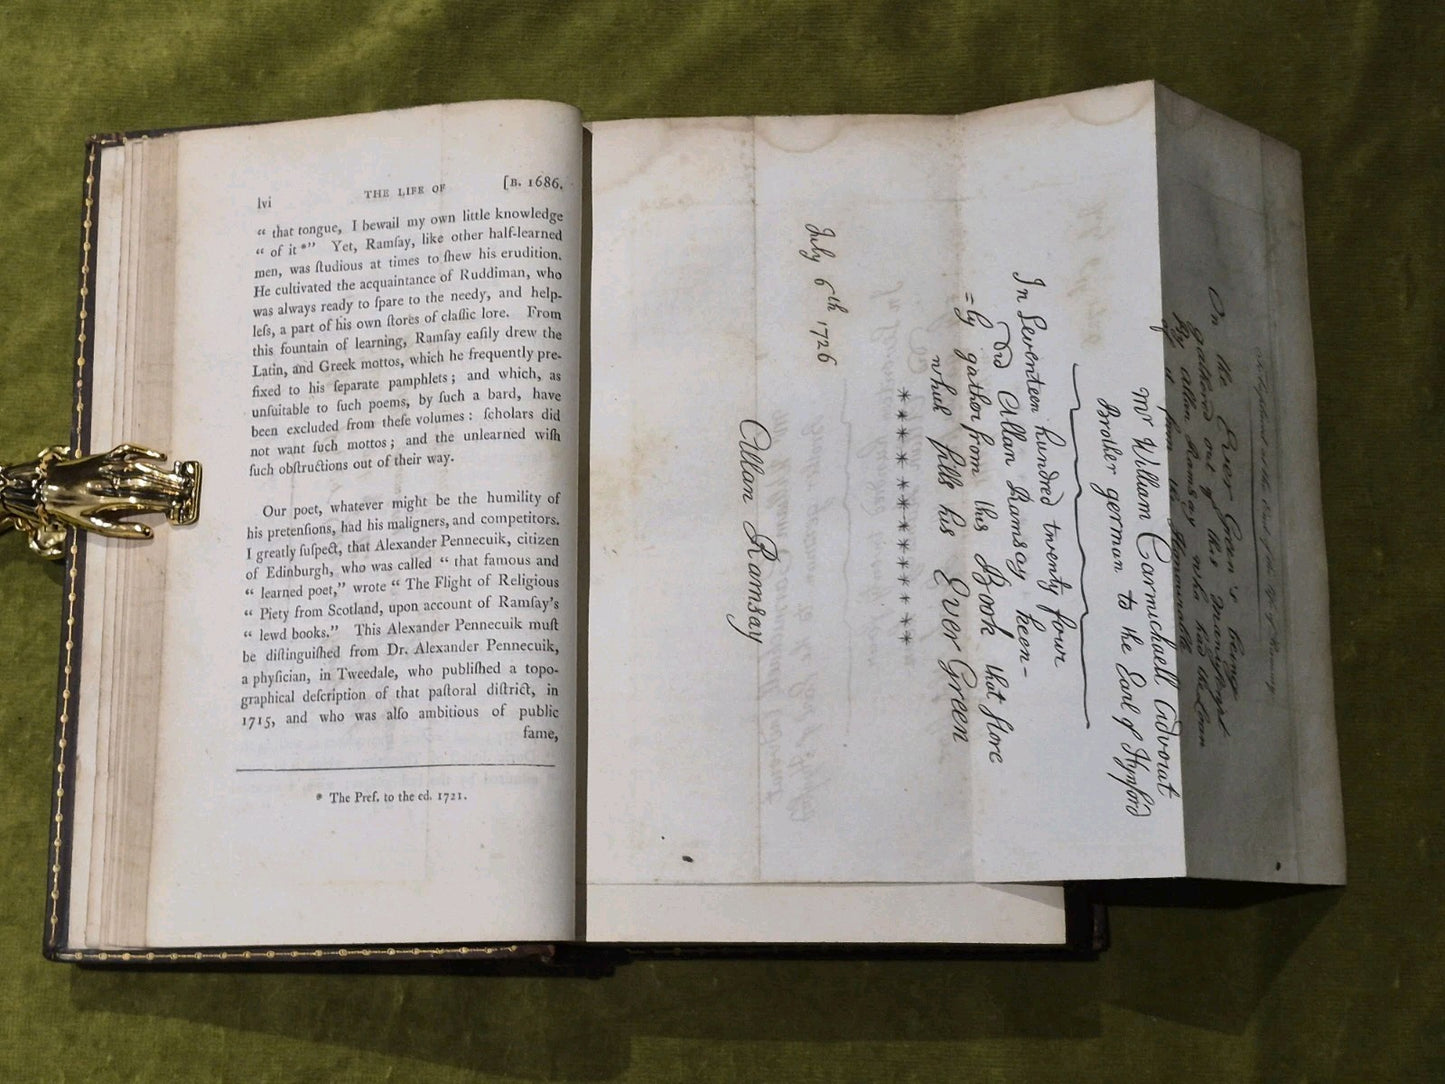 lvi THE LIFE OF [B. 1686.
“ that tongue, I bewail my own little knowledge
“ of it *” Yet, Ramſay, like other half-learned
men, was ſtudious at times to ſhew his erudition.
He cultivated the acquaintance of Ruddiman, who
was always ready to ſpare to the needy, and help-
leſs, a part of his own ſtores of claſſic lore. From
this fountain of learning, Ramſay eaſily drew the
Latin, and Greek mottos, which he frequently pre-
fixed to his ſeparate pamphlets; and which, as
unſuitable to ſuch poems, by ſuch a bard, have
been excluded from theſe volumes: ſcholars did
not want ſuch mottos; and the unlearned wiſh
ſuch obſtructions out of their way.
Our poet, whatever might be the humility of
his pretenſions, had his maligners, and competitors.
I greatly ſuſpect, that Alexander Pennecuik, citizen
of Edinburgh, who was called “ that famous and
“ learned poet,” wrote “ The Flight of Religious
“ Piety from Scotland, upon account of Ramſay's
“ lewd books.” This Alexander Pennecuik muſt
be diſtinguiſhed from Dr. Alexander Pennecuik,
a phyſician, in Tweedale, who publiſhed a topo-
graphical deſcription of that paſtoral diſtrict, in
1715, and who was alſo ambitious of public
fame,
* The Pref. to the ed. 1721.
On the Ever Green's being
gathered out of this Manuscript
By Allan Ramsay who had the Loan
of it from the Honourable
Mr William Carmichaell Advocat
Brother german to the Earl of Hynford
In Seventeen hundred twenty four
Did Allan Ramsay keen-
=ly gather from this Book that store
which fills his Ever Green
* * * * * * * * * * * * *
July 6th 1726
Allan Ramsay